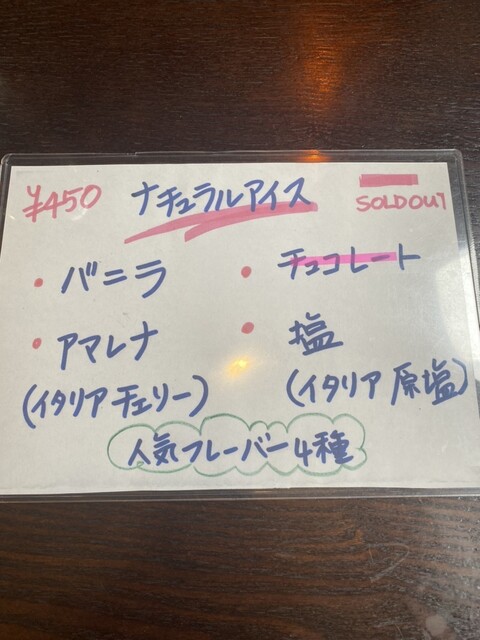 ¥450 ナチュラルアイス SOLDOUT
・バニラ ・チュコレート
・アマレナ ・塩
(イタリアチェリー) (イタリア原塩)
人気フレーバー4種